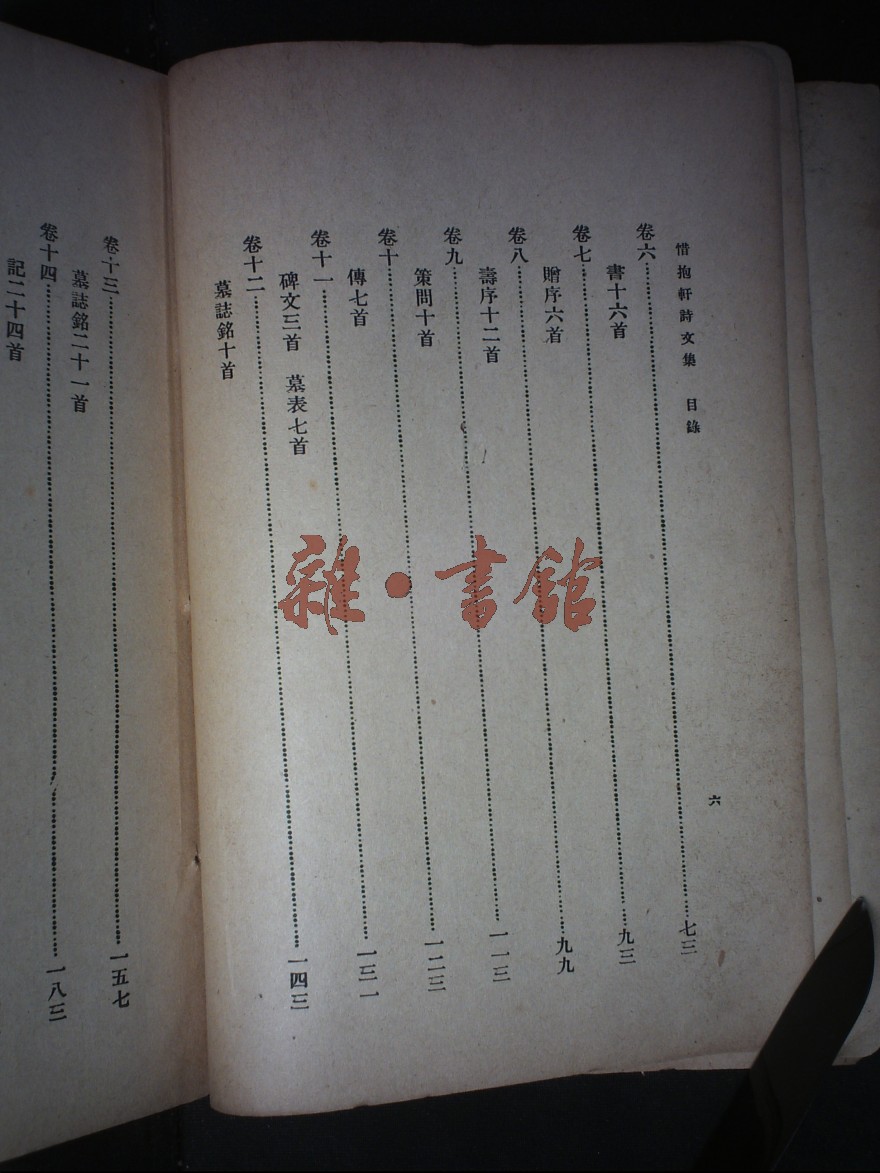 惜抱軒詩文集　目錄
六
卷六……七三
書十六首
卷七……九三
贈序六首
卷八……九九
壽序十二首
卷九……一一三
策問十首
卷十……一二三
傳七首
卷十一……一三一
碑文三首　墓表七首
卷十二……一四三
墓誌銘十首
卷十三……一五七
墓誌銘二十一首
卷十四……一八三
記二十四首
雜·書館